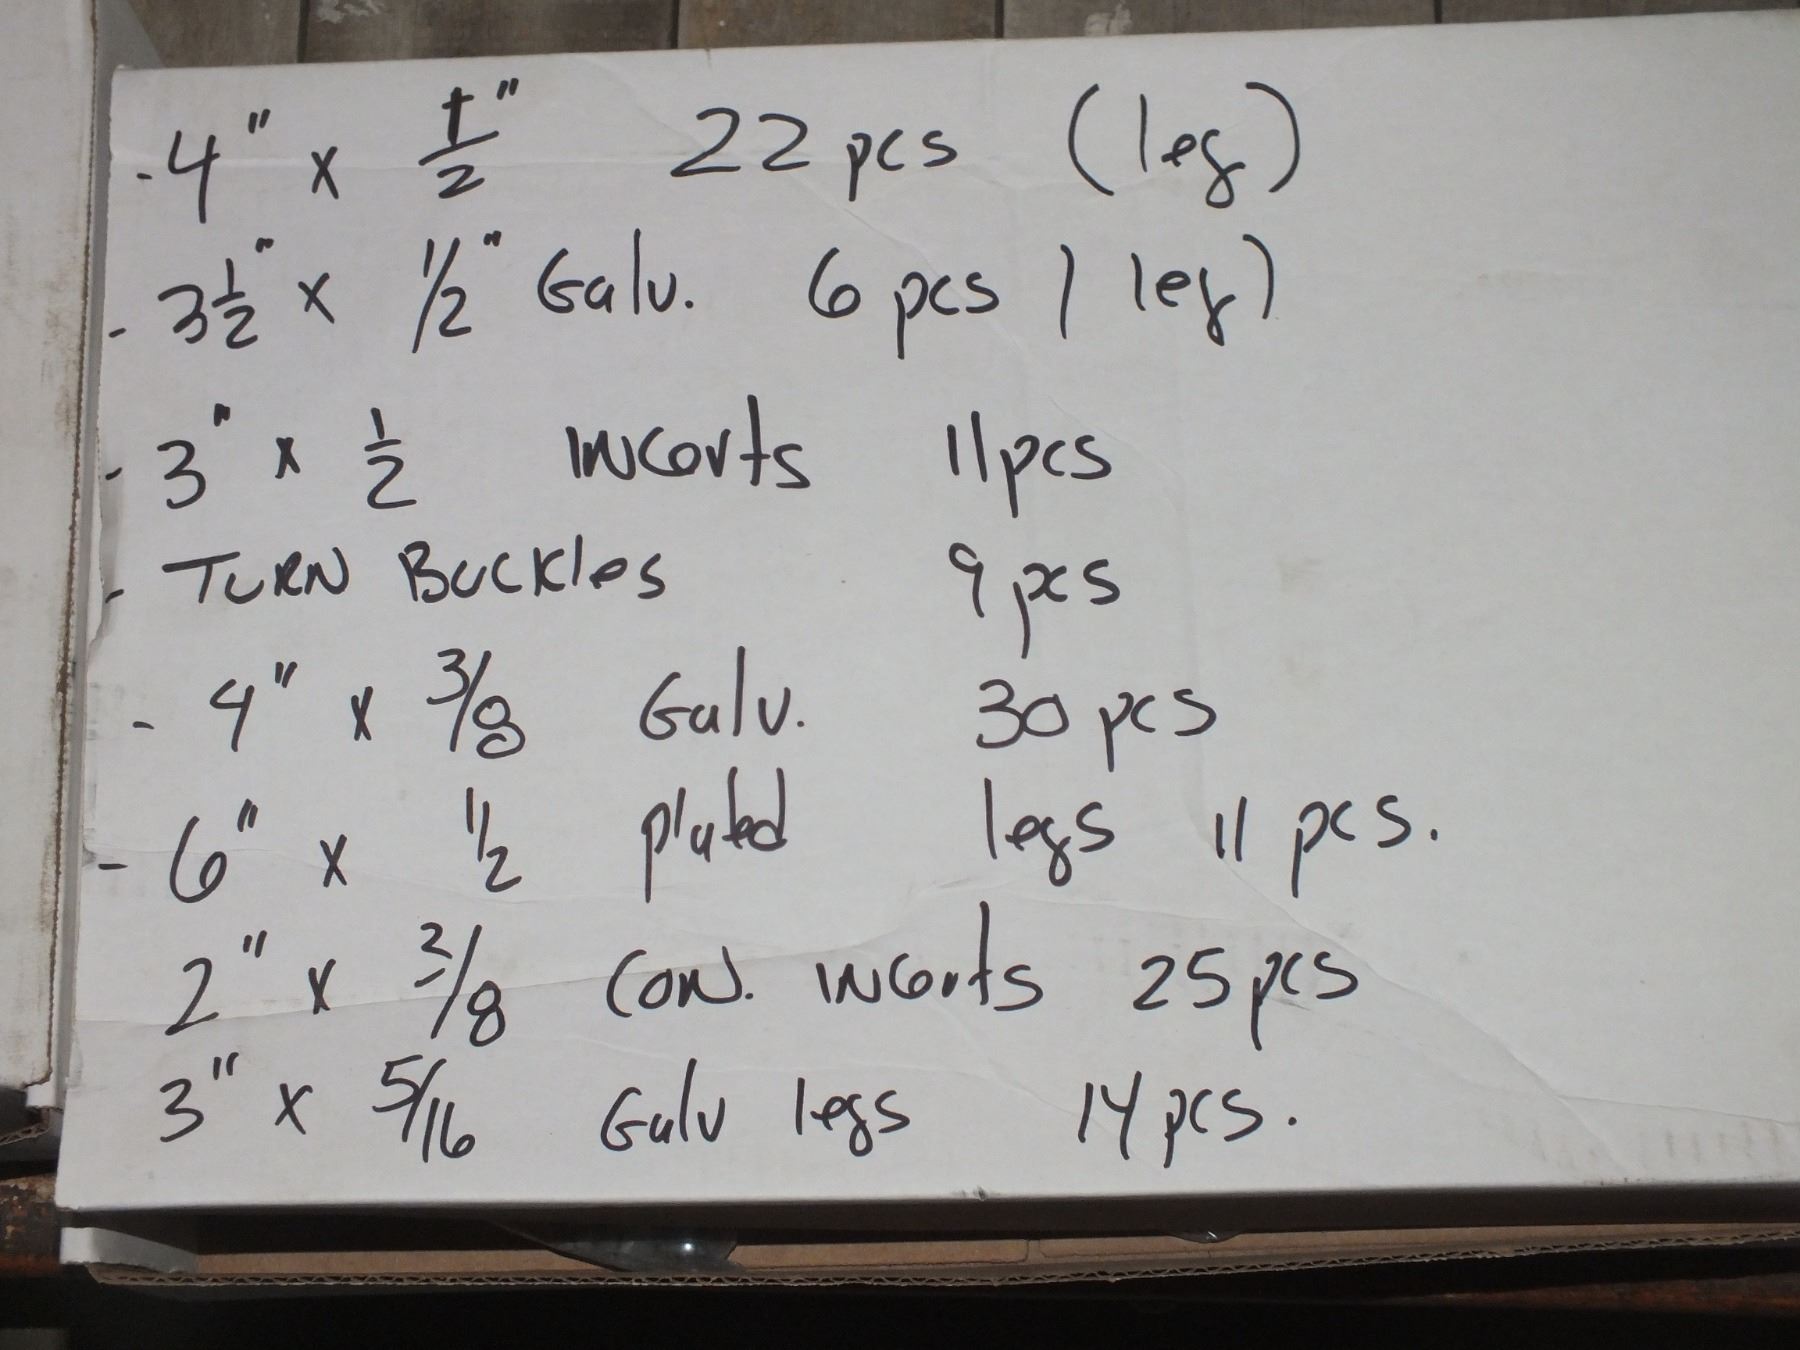 - 4" x 1/2" 22 pcs (leg)
- 3 1/2" x 1/2" Galv. 6 pcs (leg)
- 3" x 1/2 incorts 11 pcs
- TURN Buckles 9 pcs
- 4" x 3/8 Galv. 30 pcs
- 6" x 1/2 plated legs 11 pcs.
2" x 3/8 Con. incorts 25 pcs
3" x 5/16 Galv legs 14 pcs.